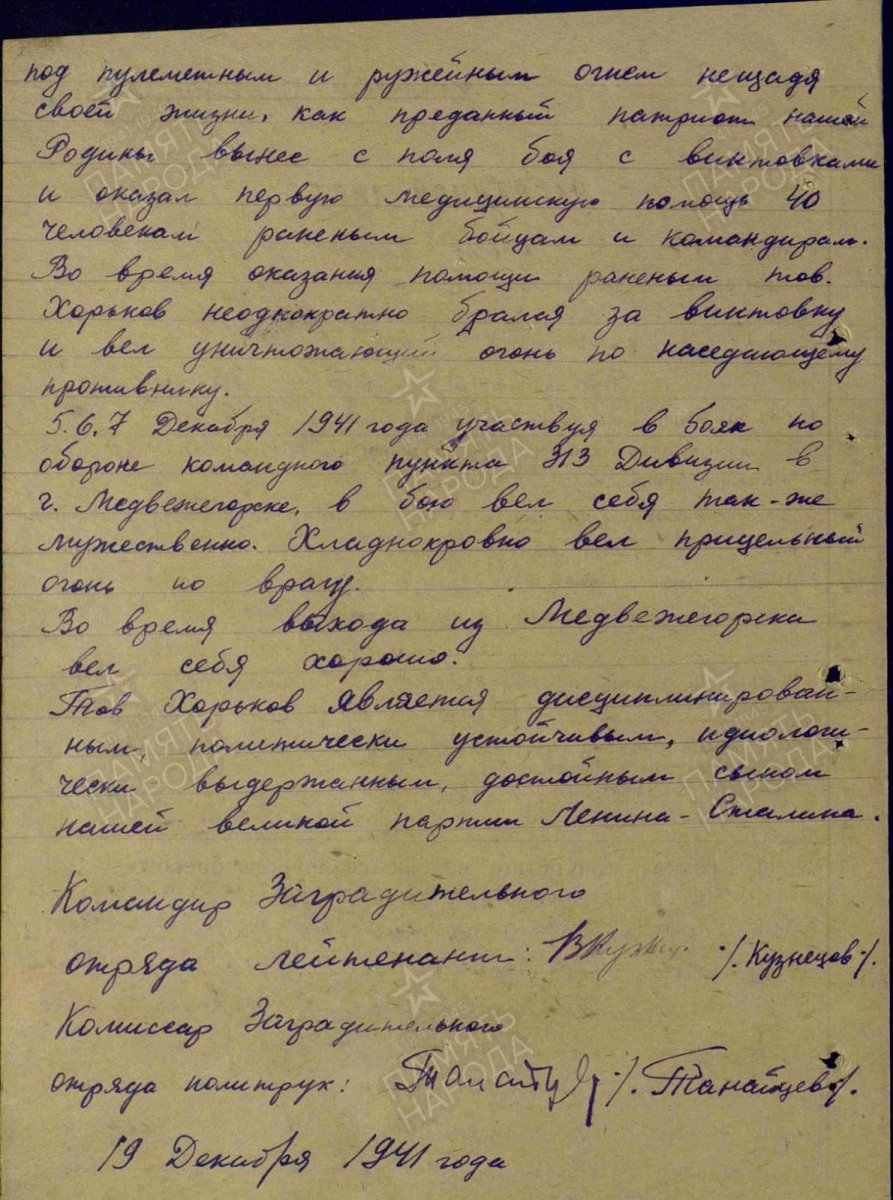 под пулеметным и ружейным огнем нещадя
своей жизни, как преданный патриот нашей
Родины вынес с поля боя с винтовками
и оказал первую медицинскую помощь 40
человекам раненым бойцам и командирам.
Во время оказания помощи раненым тов.
Хорьков неоднократно брался за винтовку
и вел уничтожающий огонь по наседающему
противнику.
5.6.7 Декабря 1941 года участвуя в боях по
обороне командного пункта 313 Дивизии в
г. Медвежегорске, в бою вел себя так-же
мужественно. Хладнокровно вел прицельный
огонь по врагу.
Во время выхода из Медвежегорска
вел себя хорошо.
Тов Хорьков является дисциплинирован-
ным, политически устойчивым, идиологи-
чески выдержанным, достойным сыном
нашей великой партии Ленина-Сталина.
Командир Заградительного
отряда лейтенант: /. Кузнецов /.
Комиссар Заградительного
отряда политрук: /. Танайцев /.
19 Декабря 1941 года
ПАМЯТЬ НАРОДА